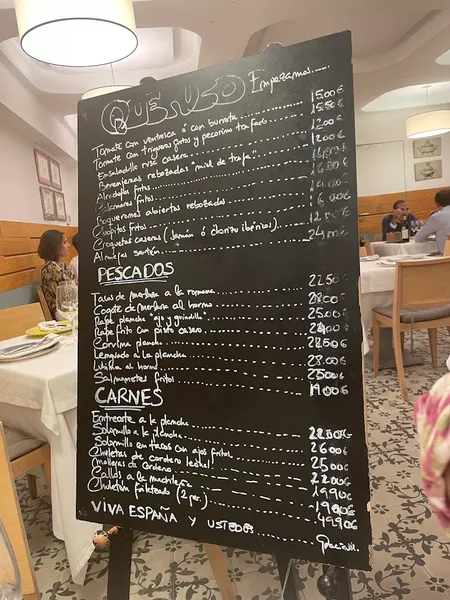 QUENCO Empezamos.....
Tomate con ventresca ó con burrata 15.00€
Tomate con trigueros fritos y pecorino trufado 15.50€
Ensaladilla rusa casera 12.00€
Berenjenas rebozadas miel de trufa 12.00€
Alcachofas fritas
Calamares fritos
Boquerones abiertos rebozados
Chopitos fritos
Croquetas caseras (Jamón ó chorizo ibérico)
Almejas sartén 24.00€
PESCADOS
Tacos de merluza a la romana 22.50€
Cogote de merluza al horno 28.00€
Rape plancha "ajo y guindilla" 25.00€
Rape frito con pisto casero
Corvina plancha
Lenguado a la plancha
Lubina al horno 28.00€
Salmonetes fritos 19.00€
CARNES
Entrecote a la plancha
Solomillo a la plancha 26.00€
Solomillo en tacos con ajos fritos 25.00€
Chuletas de cordero lechal 22.00€
Mollejas de cordero 19.90€
Callos a la madrileña
Chuletón fileteado (2 per.) 49.90€
VIVA ESPAÑA y USTEDES Gracias.